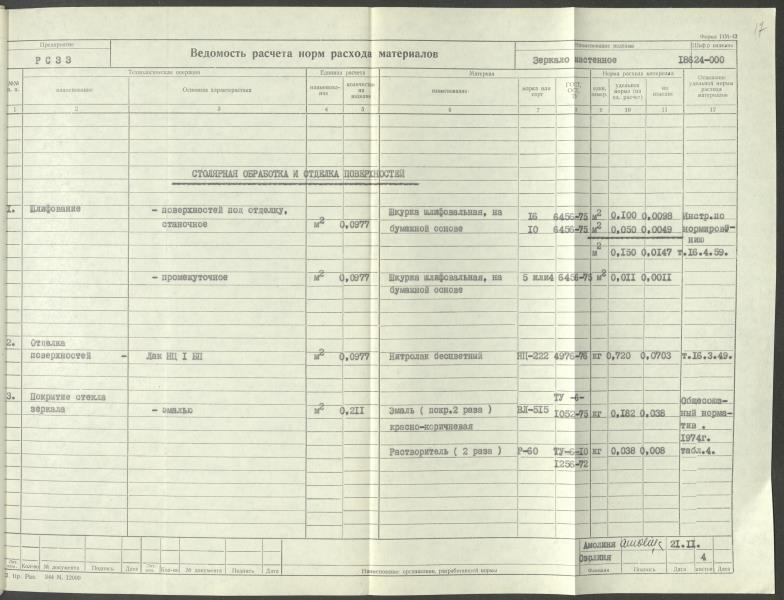 Форма 1131-42
17
Предприятие
РСЗЗ
Ведомость расчета норм расхода материалов
Наименование изделия
Зеркало настенное
Шифр изделия
I8624-000
№№ п. п.
Технологическая операция
наименование
Основная характеристика
Единица расчета
наименование
количество на изделие
Материал
наименование
марка или сорт
ГОСТ, ОСТ, ТУ
Норма расхода материала
един. измер.
удельная норма (на ед. расчет)
на изделие
Основание удельной нормы расхода материалов
1 2 3 4 5 6 7 8 9 10 11 12
СТОЛЯРНАЯ ОБРАБОТКА И ОТДЕЛКА ПОВЕРХНОСТЕЙ
1. Шлифование - поверхностей под отделку, Шкурка шлифовальная, на I6 6456-75 м2 0,I00 0,0098 Инстр.по
станочное м2 0,0977 бумажной основе I0 6456-75 м2 0,050 0,0049 нормирова-
нию
м2 0,I50 0,0I47 т.I6.4.59.
- промежуточное м2 0,0977 Шкурка шлифовальная, на 5 или4 6456-75 м2 0,0II 0,00II
бумажной основе
2. Отделка
поверхностей - Лак НЦ I БП м2 0,0977 Нитролак бесцветный НЦ-222 4976-76 кг 0,720 0,0703 т.I6.3.49.
3. Покрытие стекла ТУ -6- Общесоюз-
зеркала - эмалью м2 0,2II Эмаль ( покр.2 раза ) ВЛ-5I5 I052-75 кг 0,I82 0,038 ный норма-
красно-коричневая тив .
I974г.
Растворитель ( 2 раза ) Р-60 ТУ-6-I0 кг 0,038 0,008 табл.4.
I256-72
Амолиня 2I.II.
Озолиня 4
Кол-во № документа Подпись Дата Кол-во № документа Подпись Дата Наименование организации, разработавшей нормы Фамилия Подпись Дата листов Дата
тир. Рис. 344 М. 12000